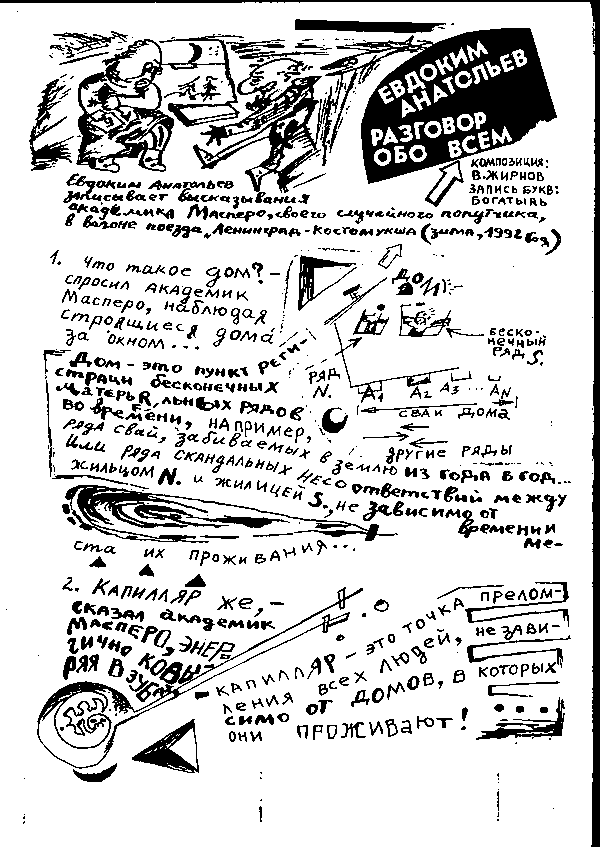 ЕВДОКИМ
АНАТОЛЬЕВ
РАЗГОВОР
ОБО ВСЕМ
КОМПОЗИЦИЯ:
В. ЖИРНОВ
ЗАПИСЬ БУКВ:
БОГАТЫРЬ
Евдоким Анатольев
записывает высказывания
академика Масперо, своего случайного попутчика,
в вагоне поезда „Ленинград-Костомукша (зима, 1992 год)
1. Что такое дом? –
спросил академик
Масперо, наблюдая
строящиеся дома
за окном...
Дом – это пункт реги-
страции бесконечных
матерьяльных рядов
во времени, например,
ряда свай, забиваемых в землю из года в год...
Или ряда скандальных несоответствий между
жильцом N. и жилицей S., не зависимо от
времени
ме-
ста их проживания...
ДО
беско-
нечный
ряд S.
РЯД
N.
A1 A2 A3 ... AN
СВАИ ДОМА
ДРУГИЕ РЯДЫ
2. Капилляр же, –
сказал академик
Масперо, энер-
гично ковы-
ряя в зубах,
– капилляр – это точка прелом-
ления всех людей, не зави-
симо от домов, в которых
они проживают!